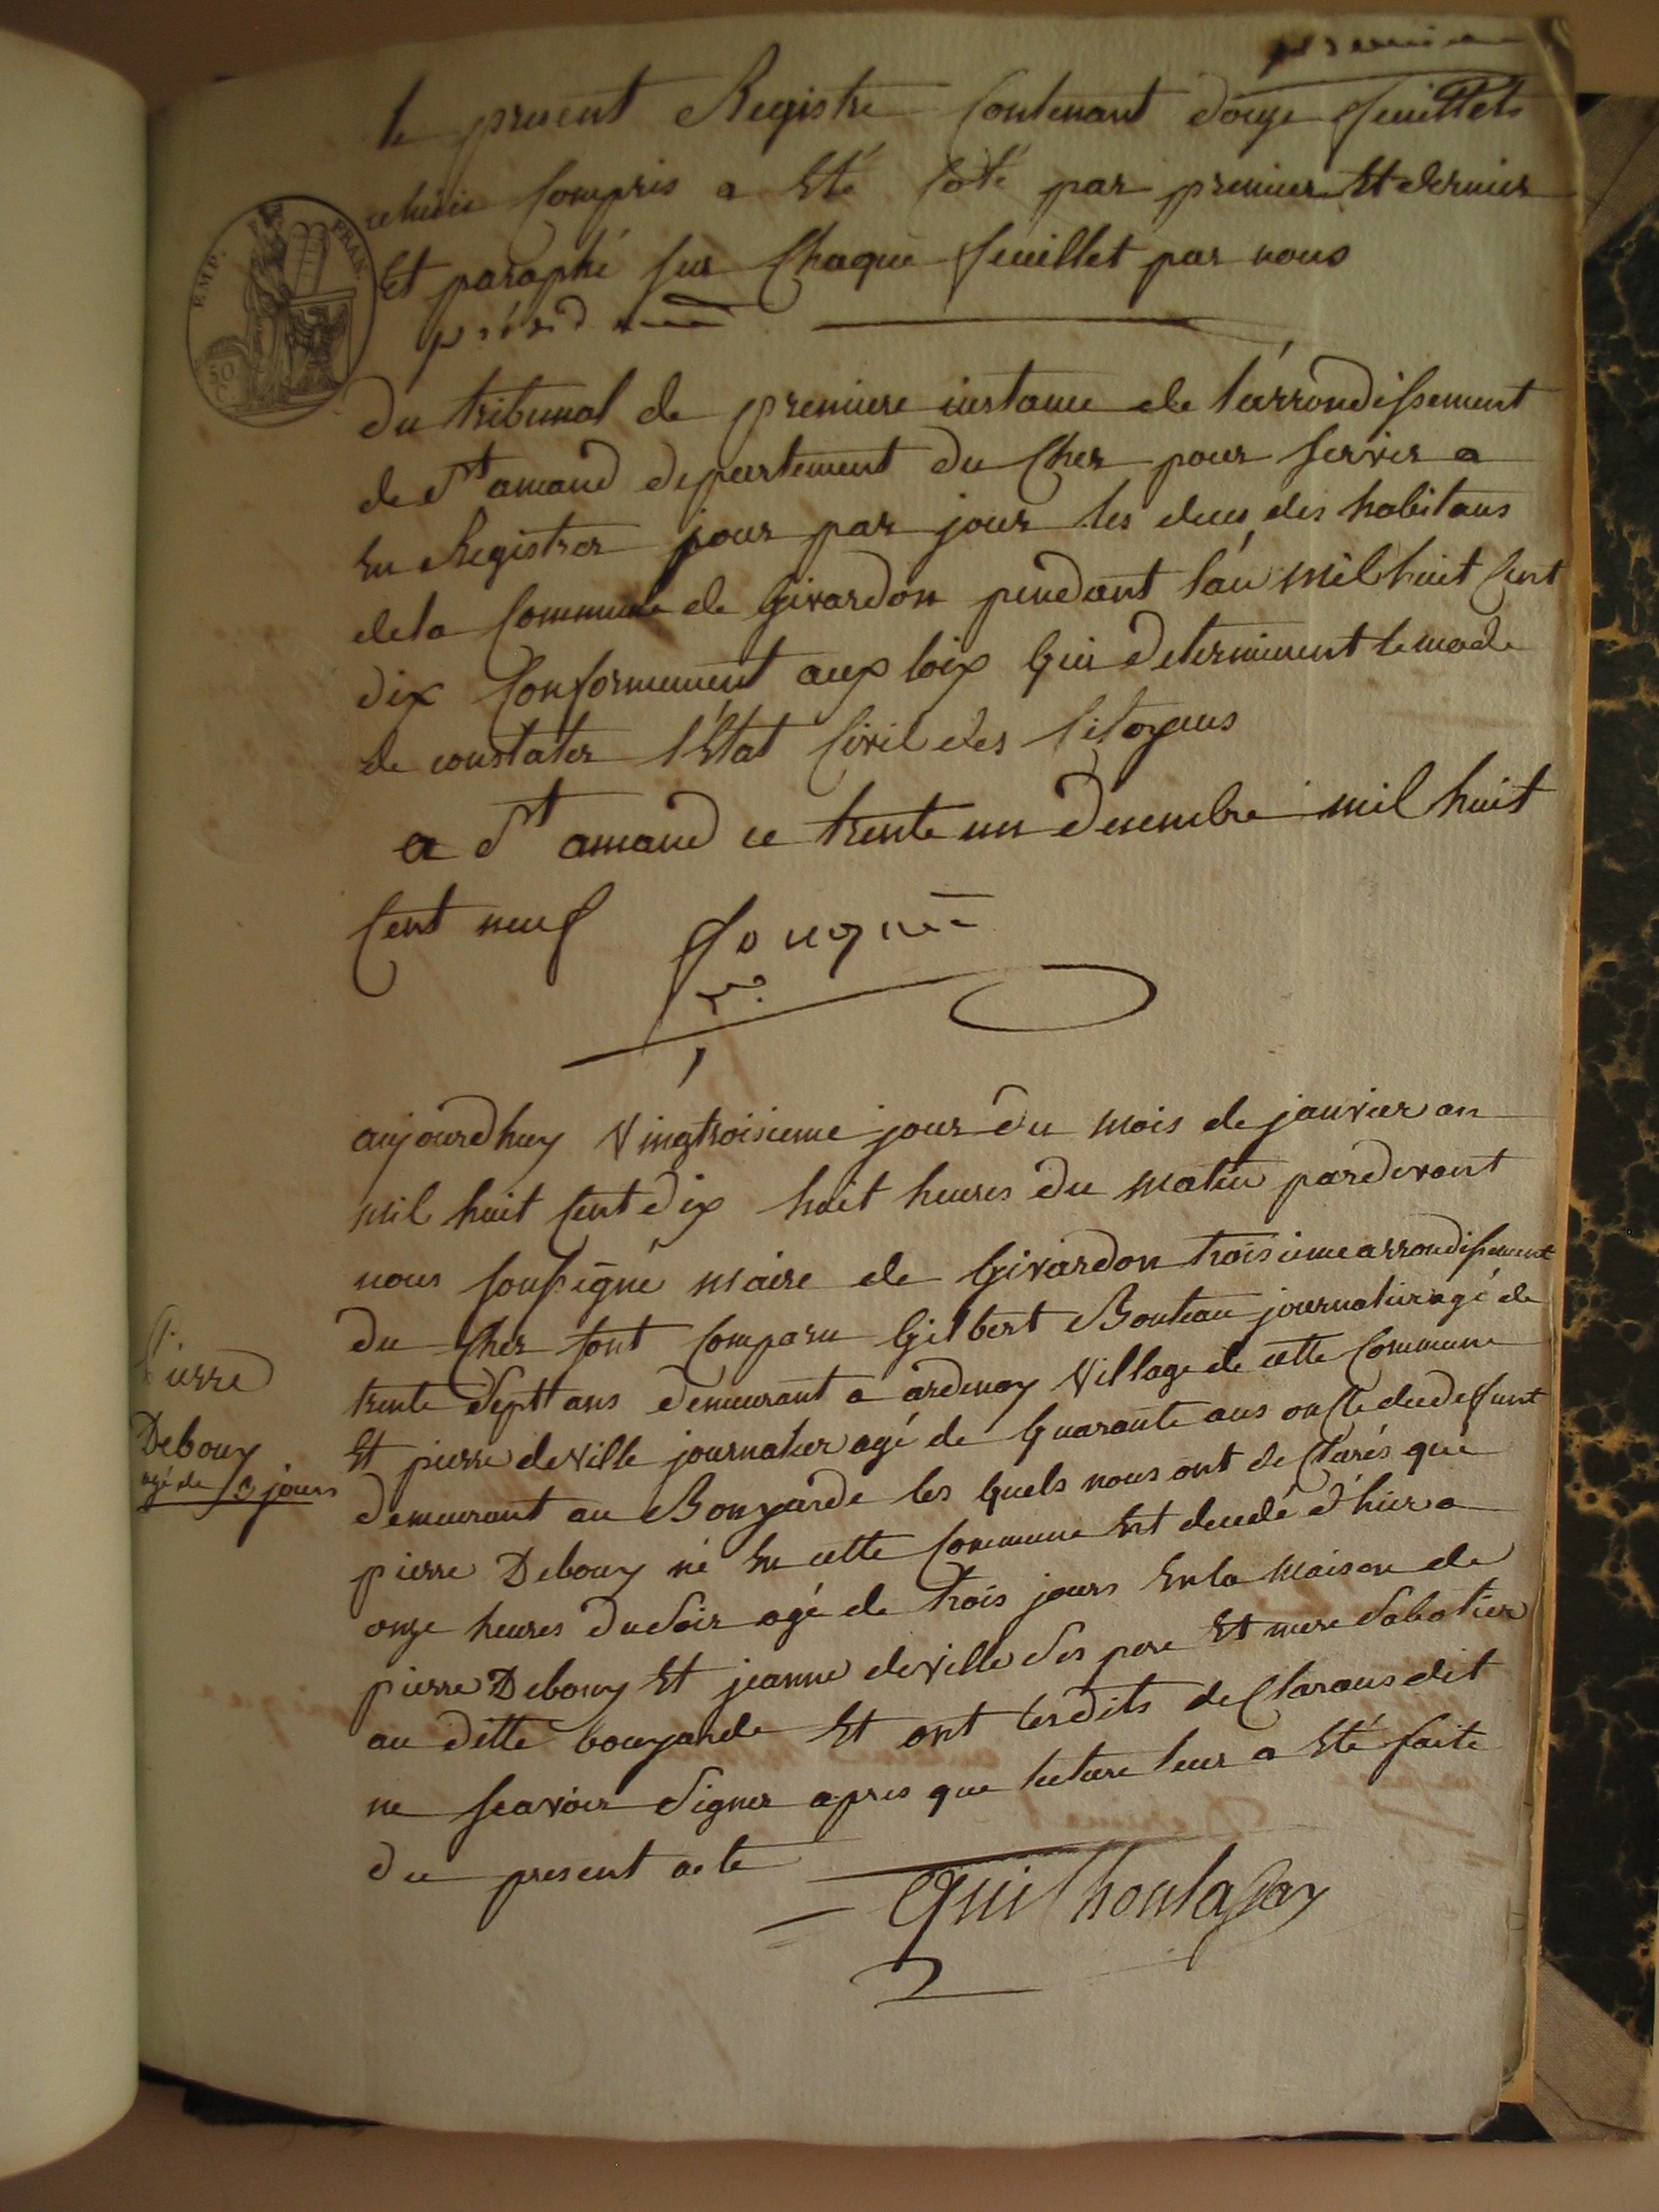 premier
le present Registre Contenant douze feuillets
celuici Compris a Eté Côté par premier Et dernier
Et paraphé sur Chaque feuillet par nous
présid
EMP. FRAN.
50 C.
du tribunal de premiere instance de l'arrondissement
de St amand departement du Cher pour servir a
En Registrer jour par jour les deces des habitans
de la Commune de Givardon pendant l'an mil huit Cent
dix Conformement aux loix Qui determinent le mode
de constater l'Etat Civil des Citoyens
a St amand ce trente un decembre mil huit
Cent neuf
aujourdhuy Vingtroisieme jour du mois de janvier an
mil huit Cent dix huit heures du matin pardevant
nous soussigné maire de Givardon troisieme arrondissement
du Cher sont Comparu Gilbert Bouteau journalier agé de
trente Sept ans demeurant a ardenay Village de cette Commune
Et pierre deville journalier agé de Quarante ans oncle du defunt
Pierre
Debouy
agé de 3 jours
demeurant au Bouyarde les Quels nous ont de Clarés que
pierre Debouy né En cette Commune Est decedé d'hier a
onze heures du Soir agé de trois jours En la maison de
pierre Debouy Et jeanne deville Ses pere Et mere Sabotier
au dette bouyarde Et ont lesdits de Clarans dit
ne scavoir Signer apres que lecture leur a Eté faite
du present acte